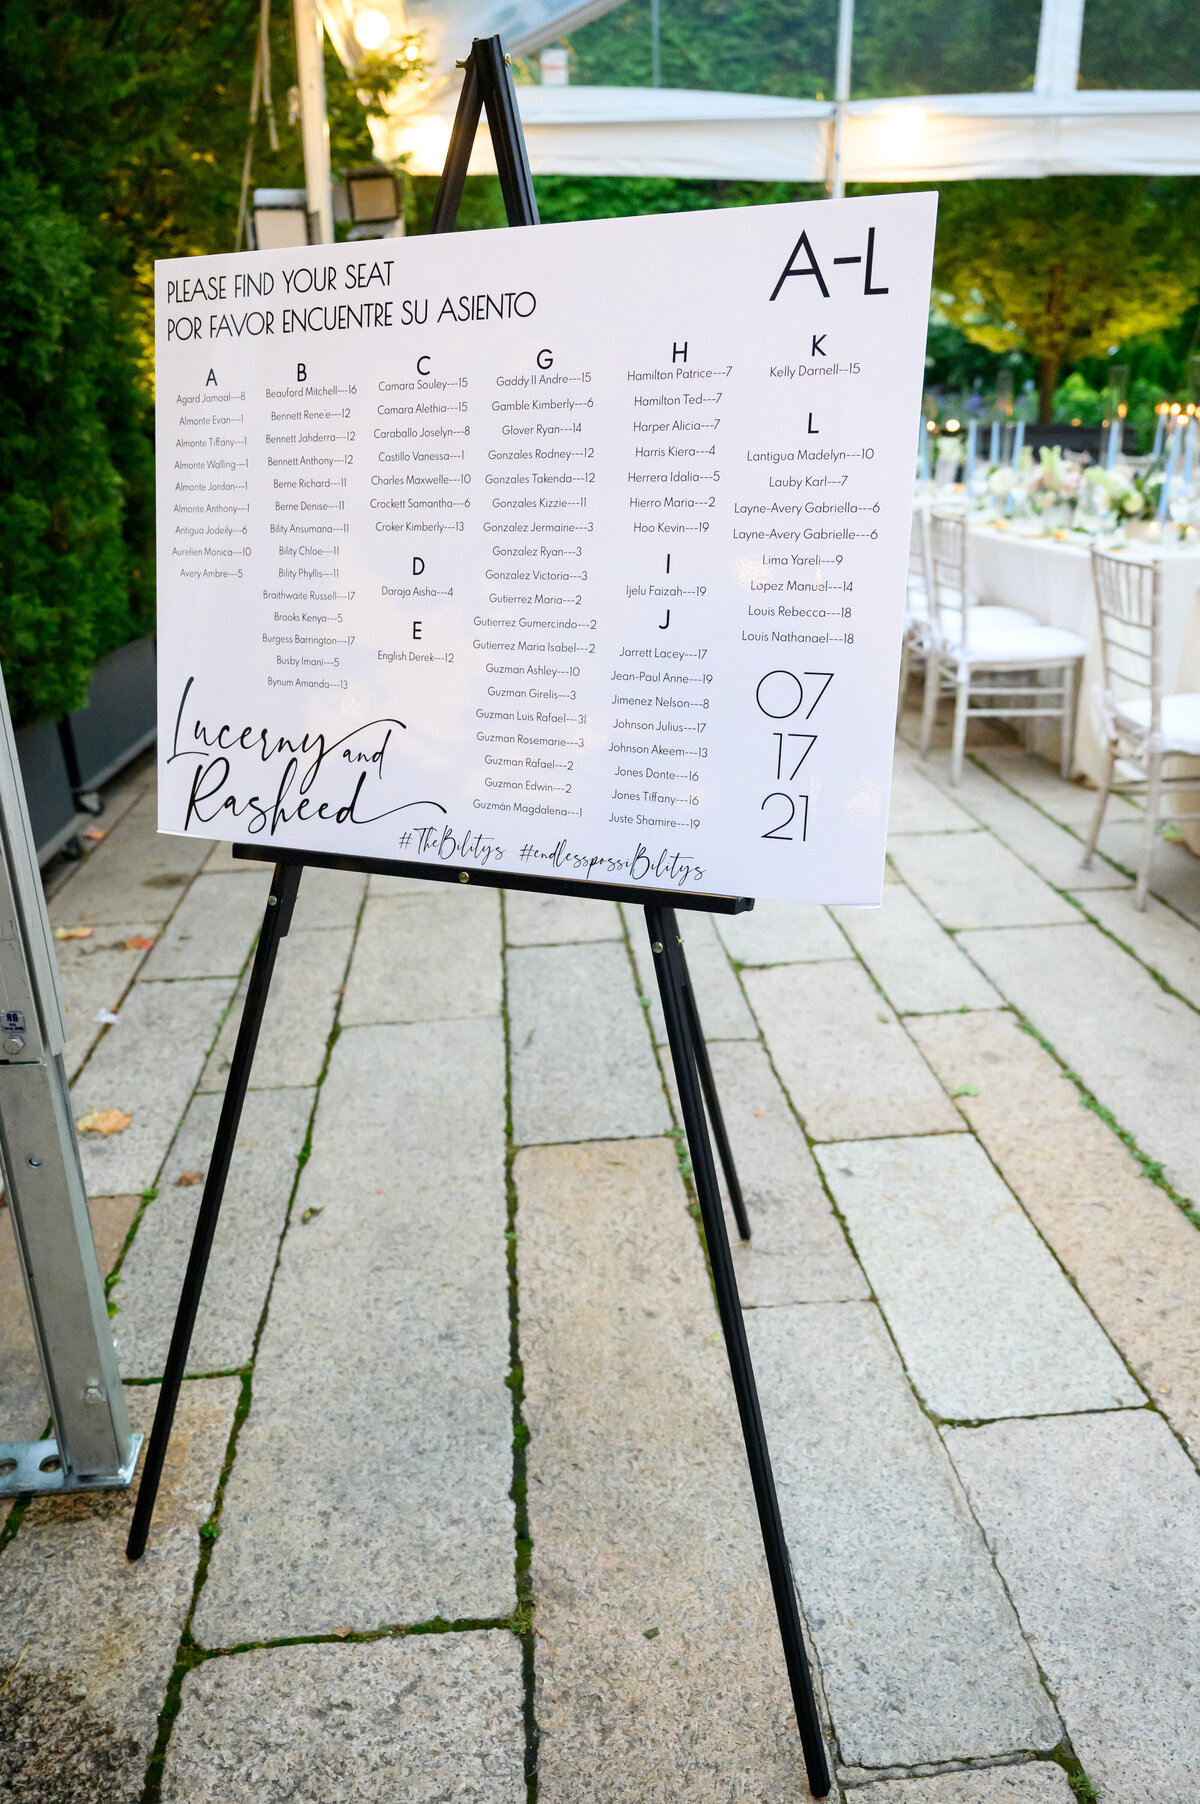 PLEASE FIND YOUR SEAT
POR FAVOR ENCUENTRE SU ASIENTO
A-L
A
Agard Jamaal---8
Almonte Evan---1
Almonte Tiffany---1
Almonte Walling---1
Almonte Jordan---1
Almonte Anthony---1
Antigua Jodeily---6
Aurelien Monica---10
Avery Ambre---5
B
Beauford Mitchell---16
Bennett Rene'e---12
Bennett Jahderra---12
Bennett Anthony---12
Berne Richard---11
Berne Denise---11
Bility Ansumana---11
Bility Chloe---11
Bility Phyllis---11
Braithwaite Russell---17
Brooks Kenya---5
Burgess Barrington---17
Busby Imani---5
Bynum Amanda---13
C
Camara Souley---15
Camara Alethia---15
Caraballo Joselyn---8
Castillo Vanessa---1
Charles Maxwelle---10
Crockett Samantha---6
Croker Kimberly---13
D
Daraja Aisha---4
E
English Derek---12
G
Gaddy II Andre---15
Gamble Kimberly---6
Glover Ryan---14
Gonzales Rodney---12
Gonzales Takenda---12
Gonzales Kizzie---11
Gonzalez Jermaine---3
Gonzalez Ryan---3
Gonzalez Victoria---3
Gutierrez Maria---2
Gutierrez Gumercindo---2
Gutierrez Maria Isabel---2
Guzman Ashley---10
Guzman Girelis---3
Guzman Luis Rafael---31
Guzman Rosemarie---3
Guzman Rafael---2
Guzman Edwin---2
Guzmán Magdalena---1
H
Hamilton Patrice---7
Hamilton Ted---7
Harper Alicia---7
Harris Kiera---4
Herrera Idalia---5
Hierro Maria---2
Hoo Kevin---19
I
Ijelu Faizah---19
J
Jarrett Lacey---17
Jean-Paul Anne---19
Jimenez Nelson---8
Johnson Julius---17
Johnson Akeem---13
Jones Donte---16
Jones Tiffany---16
Juste Shamire---19
K
Kelly Darnell--15
L
Lantigua Madelyn---10
Lauby Karl---7
Layne-Avery Gabriella---6
Layne-Avery Gabrielle---6
Lima Yareli---9
Lopez Manuel---14
Louis Rebecca---18
Louis Nathanael---18
07
17
21
Lucerny and
Rasheed
#TheBilitys #endlesspossiBilitys